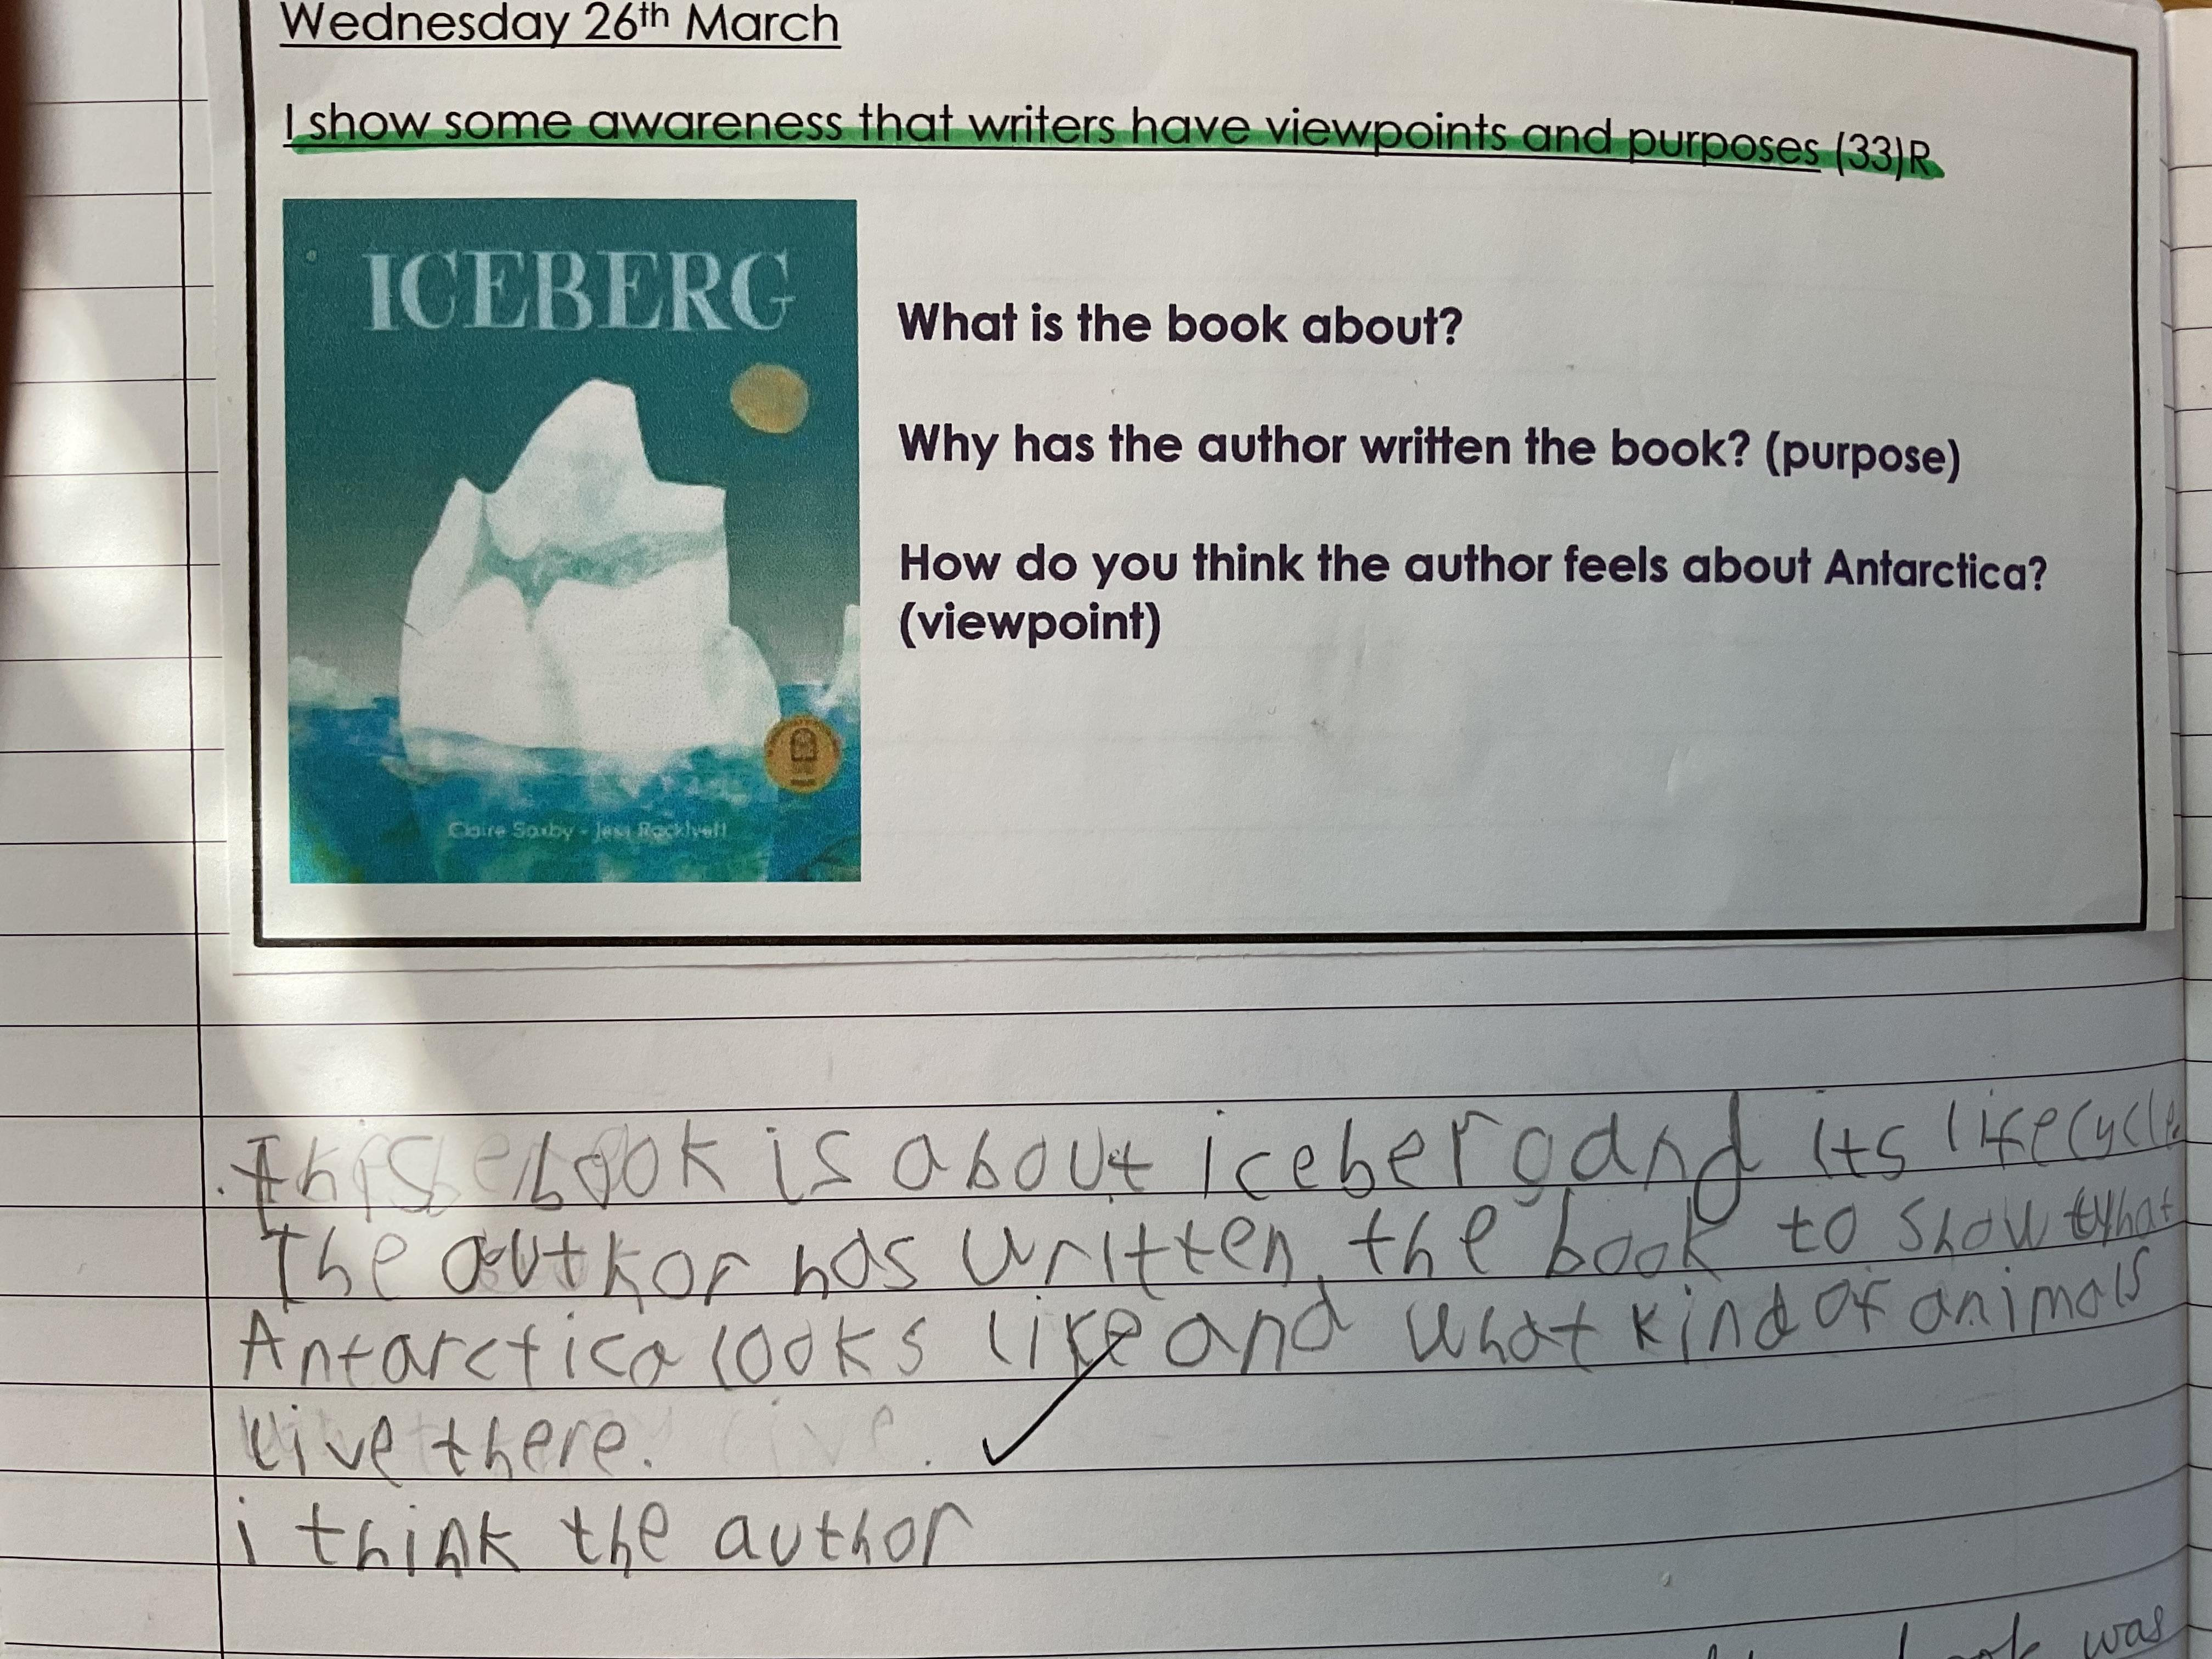 Wednesday 26th March
I show some awareness that writers have viewpoints and purposes (33)R
ICEBERG
What is the book about?
Why has the author written the book? (purpose)
How do you think the author feels about Antarctica?
(viewpoint)
Claire Saxby - Jess Racklyeft
This book is about iceberg and its lifecycle.
The author has written the book to show what
Antarctica looks like and what kind of animals
live there.
i think the author
book was